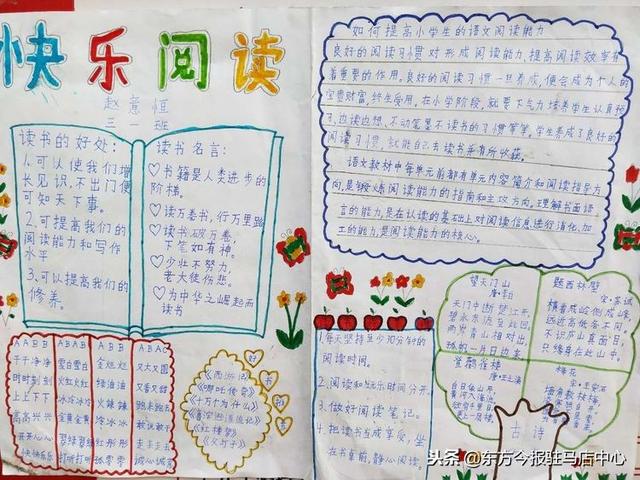 快乐阅读
赵意恒
三一班
读书的好处:
1.可以使我们增
长见识,不出门便
可知天下事。
2.可提高我们的
阅读能力和写作
水平
3.可以提高我们的
修养。
读书名言:
书籍是人类进步的
阶梯。
读万卷书,行万里路
读书破万卷,
下笔如有神。
少壮不努力,
老大徒伤悲。
为中华之崛起而
读书
如何提高小学生的语文阅读能力
良好的阅读习惯对形成阅读能力,提高阅读效率有
着重要的作用。良好的阅读习惯一旦养成,便会成为个人的
宝贵财富,终生受用。在小学阶段,就要下气力培养学生认真预
习,边读边想、不动笔墨不读书的习惯等等,学生养成了良好的
阅读习惯,就能自己去读书并有所收获。
语文教材中每单元前都有单元内容简介和阅读指导方
向,是锻炼阅读能力的指南和主攻方向。理解书面语
言的能力,是在认读的基础上对阅读信息进行消化,加
工的能力,是阅读能力的核心。
AABB
干干净净
时时刻刻
上上下下
高高兴兴
开开心心
快快乐乐
ABAB
雪白雪白
火红火红
冰冷冰冷
金黄金黄
打听打听
ABB
金灿灿
绿油油
火辣辣
冷冰冰
红彤彤
孤零零
ABAC
又大又圆
又香又甜
诚心诚意
好书
《西游记》
《哪吒传奇》
《十万个为什么》
《鲁宾逊漂流记》
《红楼梦》
《父与子》
1.每天坚持至少30分钟的
阅读时间。
2.阅读和娱乐时间分开。
3.做好阅读笔记。
4.把读书当成享受,坐
在书桌前,静心阅读。
望天门山
唐·李白
天门中断楚江开,
碧水东流至此回。
两岸青山相对出,
孤帆一片日边来
题西林壁
宋·苏轼
横看成岭侧成峰,
远近高低各不同。
不识庐山真面目,
只缘身在此山中。
登鹳雀楼
唐·王之涣
白日依山尽,
黄河入海流。
欲穷千里目,
更上一层楼。
梅花
宋·王安石
墙角数枝梅,
凌寒独自开。
古诗
头条 @东方今报驻马店中心